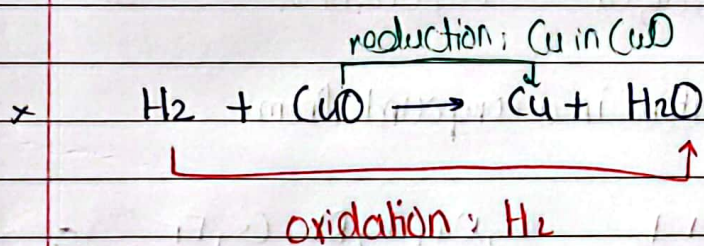 reduction: Cu in CuO
× H2 + CuO → Cu + H2O
oxidation: H2